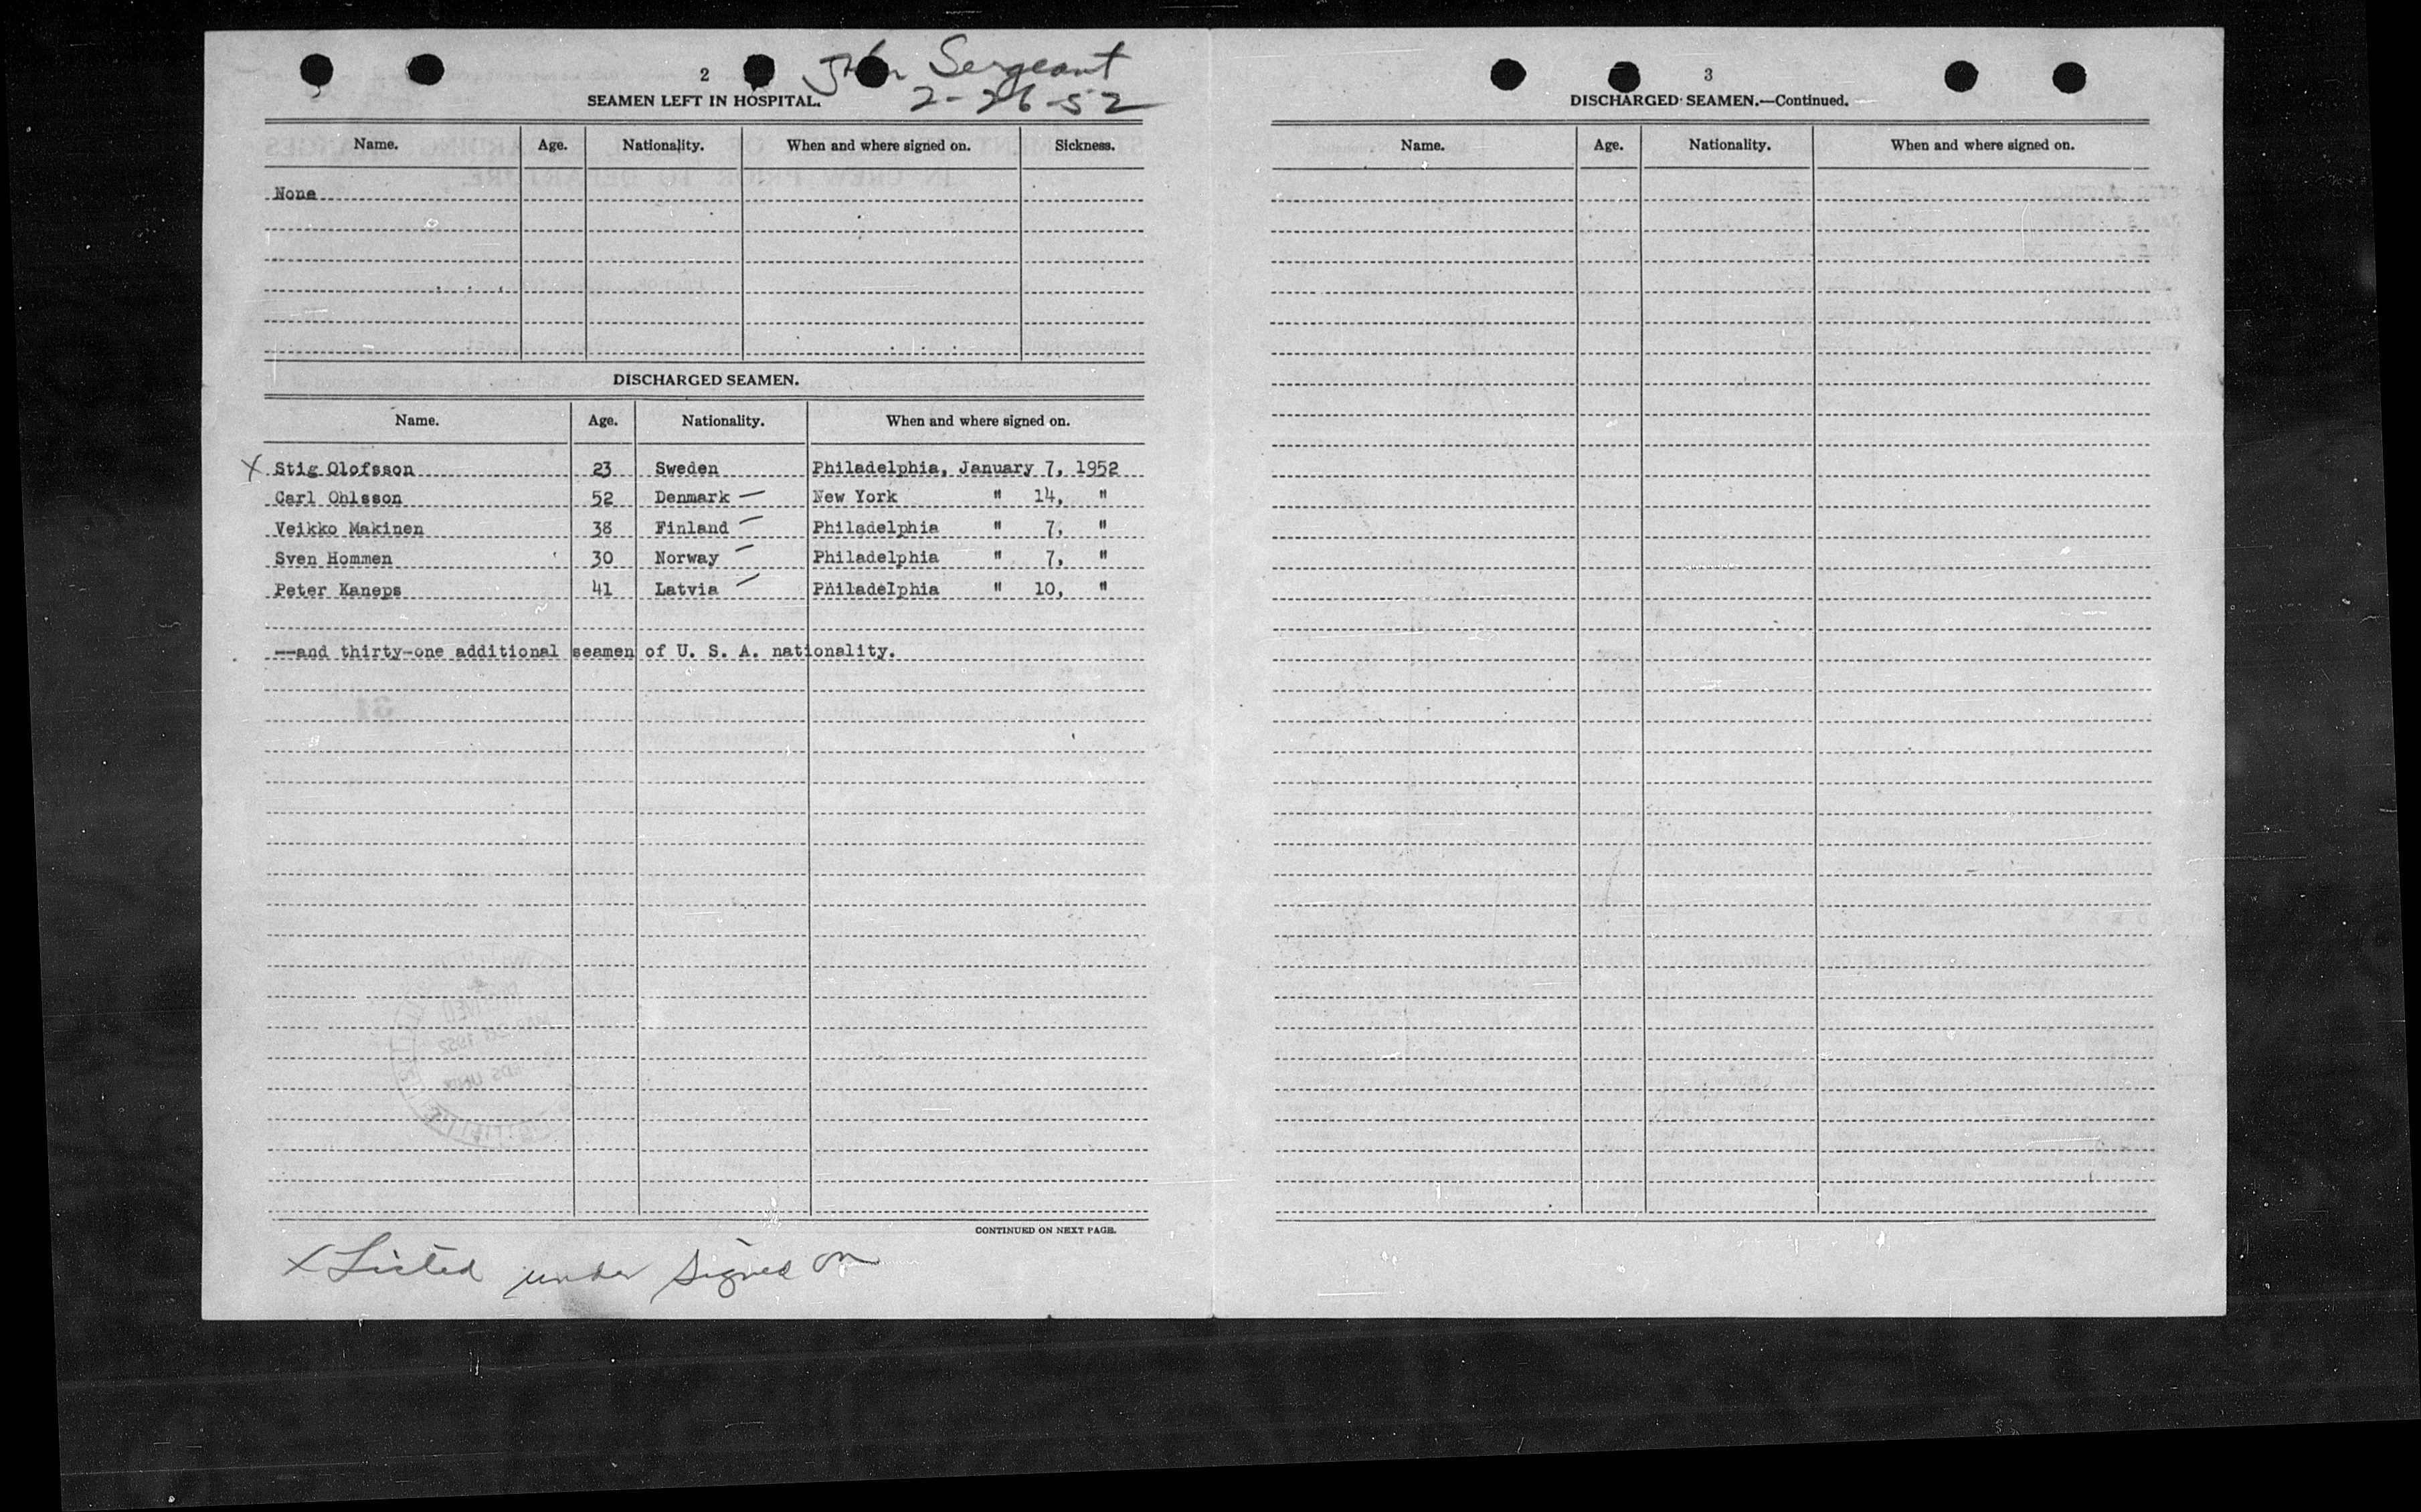 John Sergeant
2-26-52
2
SEAMEN LEFT IN HOSPITAL.
Name. Age. Nationality. When and where signed on. Sickness.
None
DISCHARGED SEAMEN.
Name. Age. Nationality. When and where signed on.
X Stig Olofsson 23 Sweden Philadelphia, January 7, 1952
Carl Ohlsson 52 Denmark — New York " 14, "
Veikko Makinen 38 Finland — Philadelphia " 7, "
Sven Hommen 30 Norway — Philadelphia " 7, "
Peter Kaneps 41 Latvia — Philadelphia " 10, "
--and thirty-one additional seamen of U. S. A. nationality.
CONTINUED ON NEXT PAGE.
X Listed under signed on
3
DISCHARGED SEAMEN.—Continued.
Name. Age. Nationality. When and where signed on.